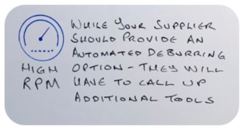 WHILE YOUR SUPPLIER
SHOULD PROVIDE AN
AUTOMATED DEBURRING
OPTION - THEY WILL
HAVE TO CALL UP
ADDITIONAL TOOLS
HIGH
RPM